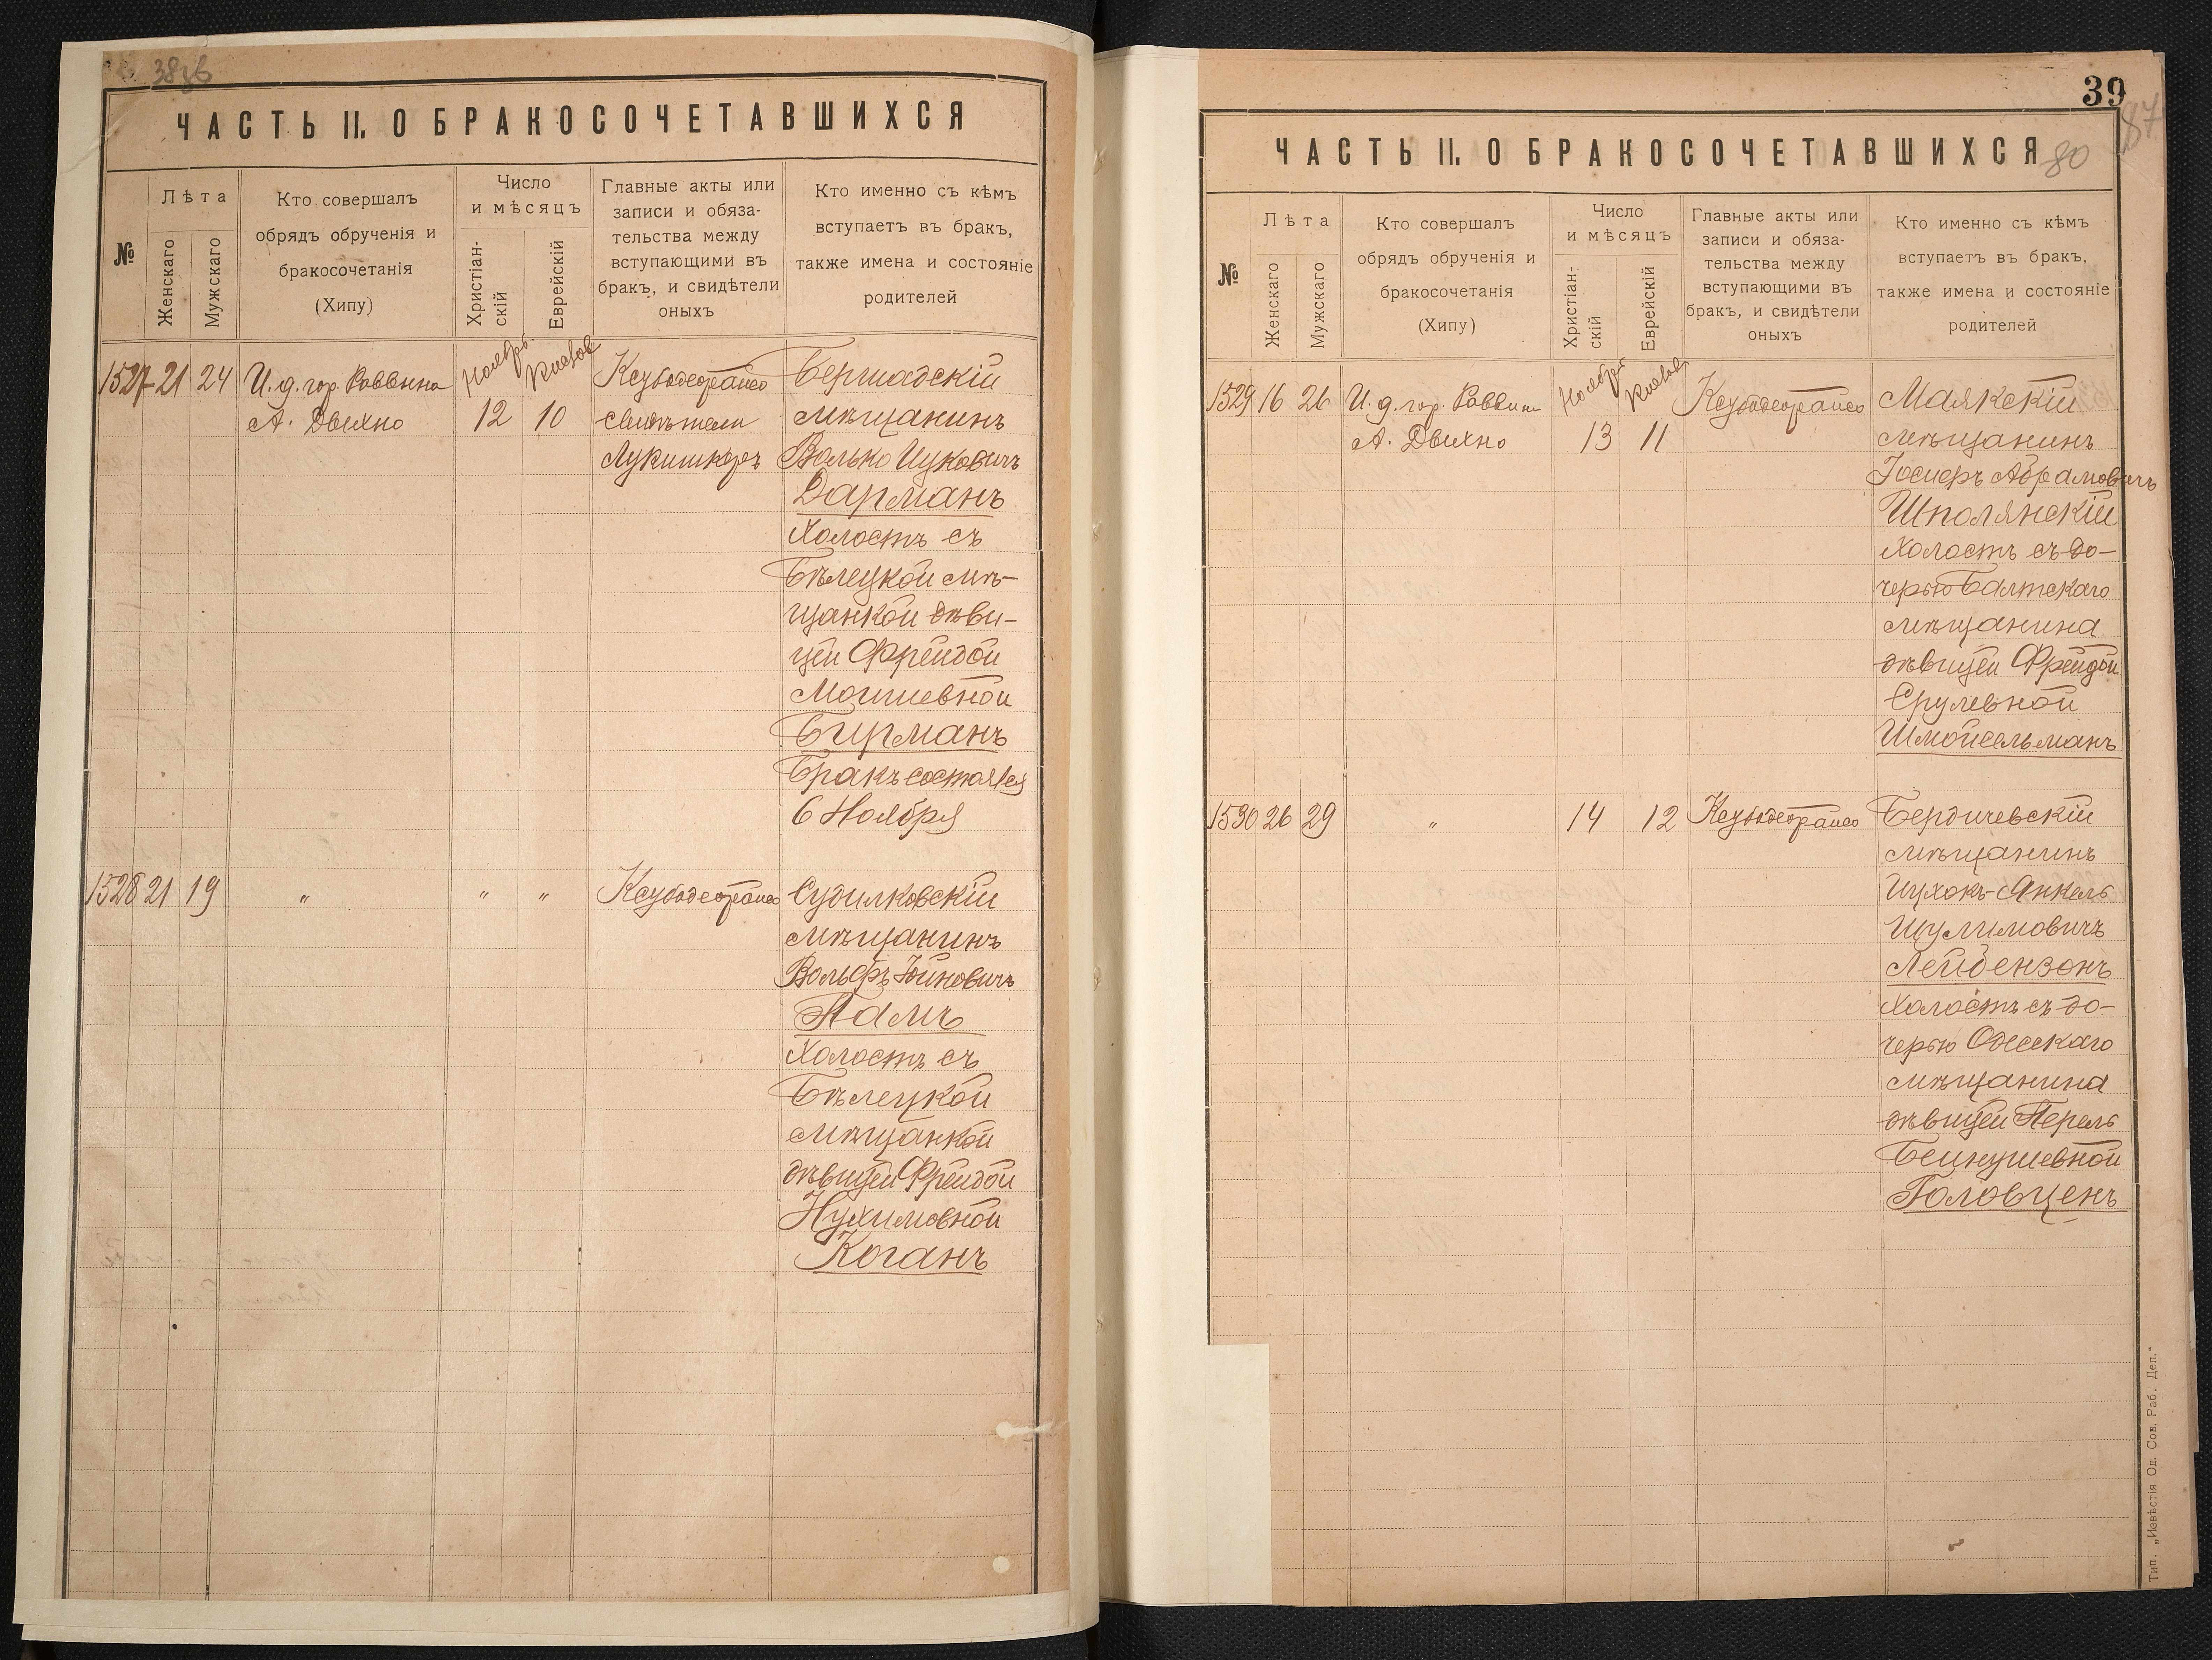 ЧАСТЬ II. О БРАКОСОЧЕТАВШИХСЯ
№
Лѣта
Женскаго
Мужскаго
Кто совершалъ
обрядъ обрученія и
бракосочетанія
(Хипу)
Число
и мѣсяцъ
Христіан-
скій
Еврейскій
Главные акты или
записи и обяза-
тельства между
вступающими въ
бракъ, и свидѣтели
оныхъ
Кто именно съ кѣмъ
вступаетъ въ бракъ,
также имена и состояніе
родителей
1527 21 24 И. д. гор. Раввина Ноябрь Кислов Бершадскій
А. Двихно 12 10 свидѣтели мѣщанинъ
Волько Ицковичъ
Дарманъ
Холостъ съ
Бѣлецкой мѣ-
щанкой дѣви-
цей Фрейдой
Мошиевной
Бирманъ
Бракъ состоялся
6 Ноября
1528 21 19 " " " Судилковскій
мѣщанинъ
Вольфъ Юйновичъ
Палъ
Холостъ съ
Бѣлецкой
мѣщанкой
дѣвицей Фрейдой
Нухимовной
Коганъ
39
87
80
ЧАСТЬ II. О БРАКОСОЧЕТАВШИХСЯ
№
Лѣта
Женскаго
Мужскаго
Кто совершалъ
обрядъ обрученія и
бракосочетанія
(Хипу)
Число
и мѣсяцъ
Христіан-
скій
Еврейскій
Главные акты или
записи и обяза-
тельства между
вступающими въ
бракъ, и свидѣтели
оныхъ
Кто именно съ кѣмъ
вступаетъ въ бракъ,
также имена и состояніе
родителей
1529 16 26 И. д. гор. Раввина Ноября Кислов Маякскій
А. Двихно 13 11 мѣщанинъ
Іосифъ Абрамовичъ
Шполянскій
Холостъ съ до-
черью Балтскаго
мѣщанина
дѣвицей Фрейдой
Срулевной
Шмойсельманъ
1530 26 29 " 14 12 Бердичевскій
мѣщанинъ
Ицхокъ-Янкель
Шулимовичъ
Лейбензонъ
Холостъ съ до-
черью Одесскаго
мѣщанина
дѣвицей Перель
Бецнушевной
Головценъ
Тип. „Извѣстія Од. Сов. Раб. Деп."